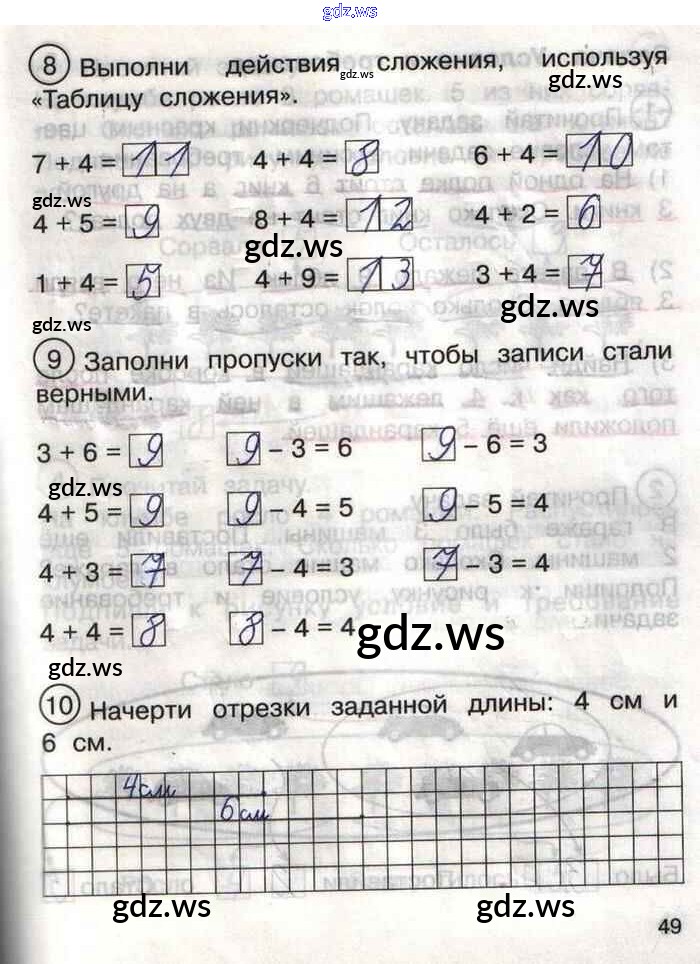 gdz.ws
8 Выполни действия сложения, используя
gdz.ws
gdz.ws
«Таблицу сложения».
7 + 4 = 11 4 + 4 = 8 6 + 4 = 10
gdz.ws
4 + 5 = 9 8 + 4 = 12 4 + 2 = 6
gdz.ws
1 + 4 = 5 4 + 9 = 13 3 + 4 = 7
gdz.ws
gdz.ws
9 Заполни пропуски так, чтобы записи стали
верными.
3 + 6 = 9 9 – 3 = 6 9 – 6 = 3
gdz.ws
4 + 5 = 9 9 – 4 = 5 9 – 5 = 4
4 + 3 = 7 7 – 4 = 3 7 – 3 = 4
4 + 4 = 8 8 – 4 = 4
gdz.ws
gdz.ws
10 Начерти отрезки заданной длины: 4 см и
6 см.
4 см
6 см
gdz.ws
gdz.ws
49